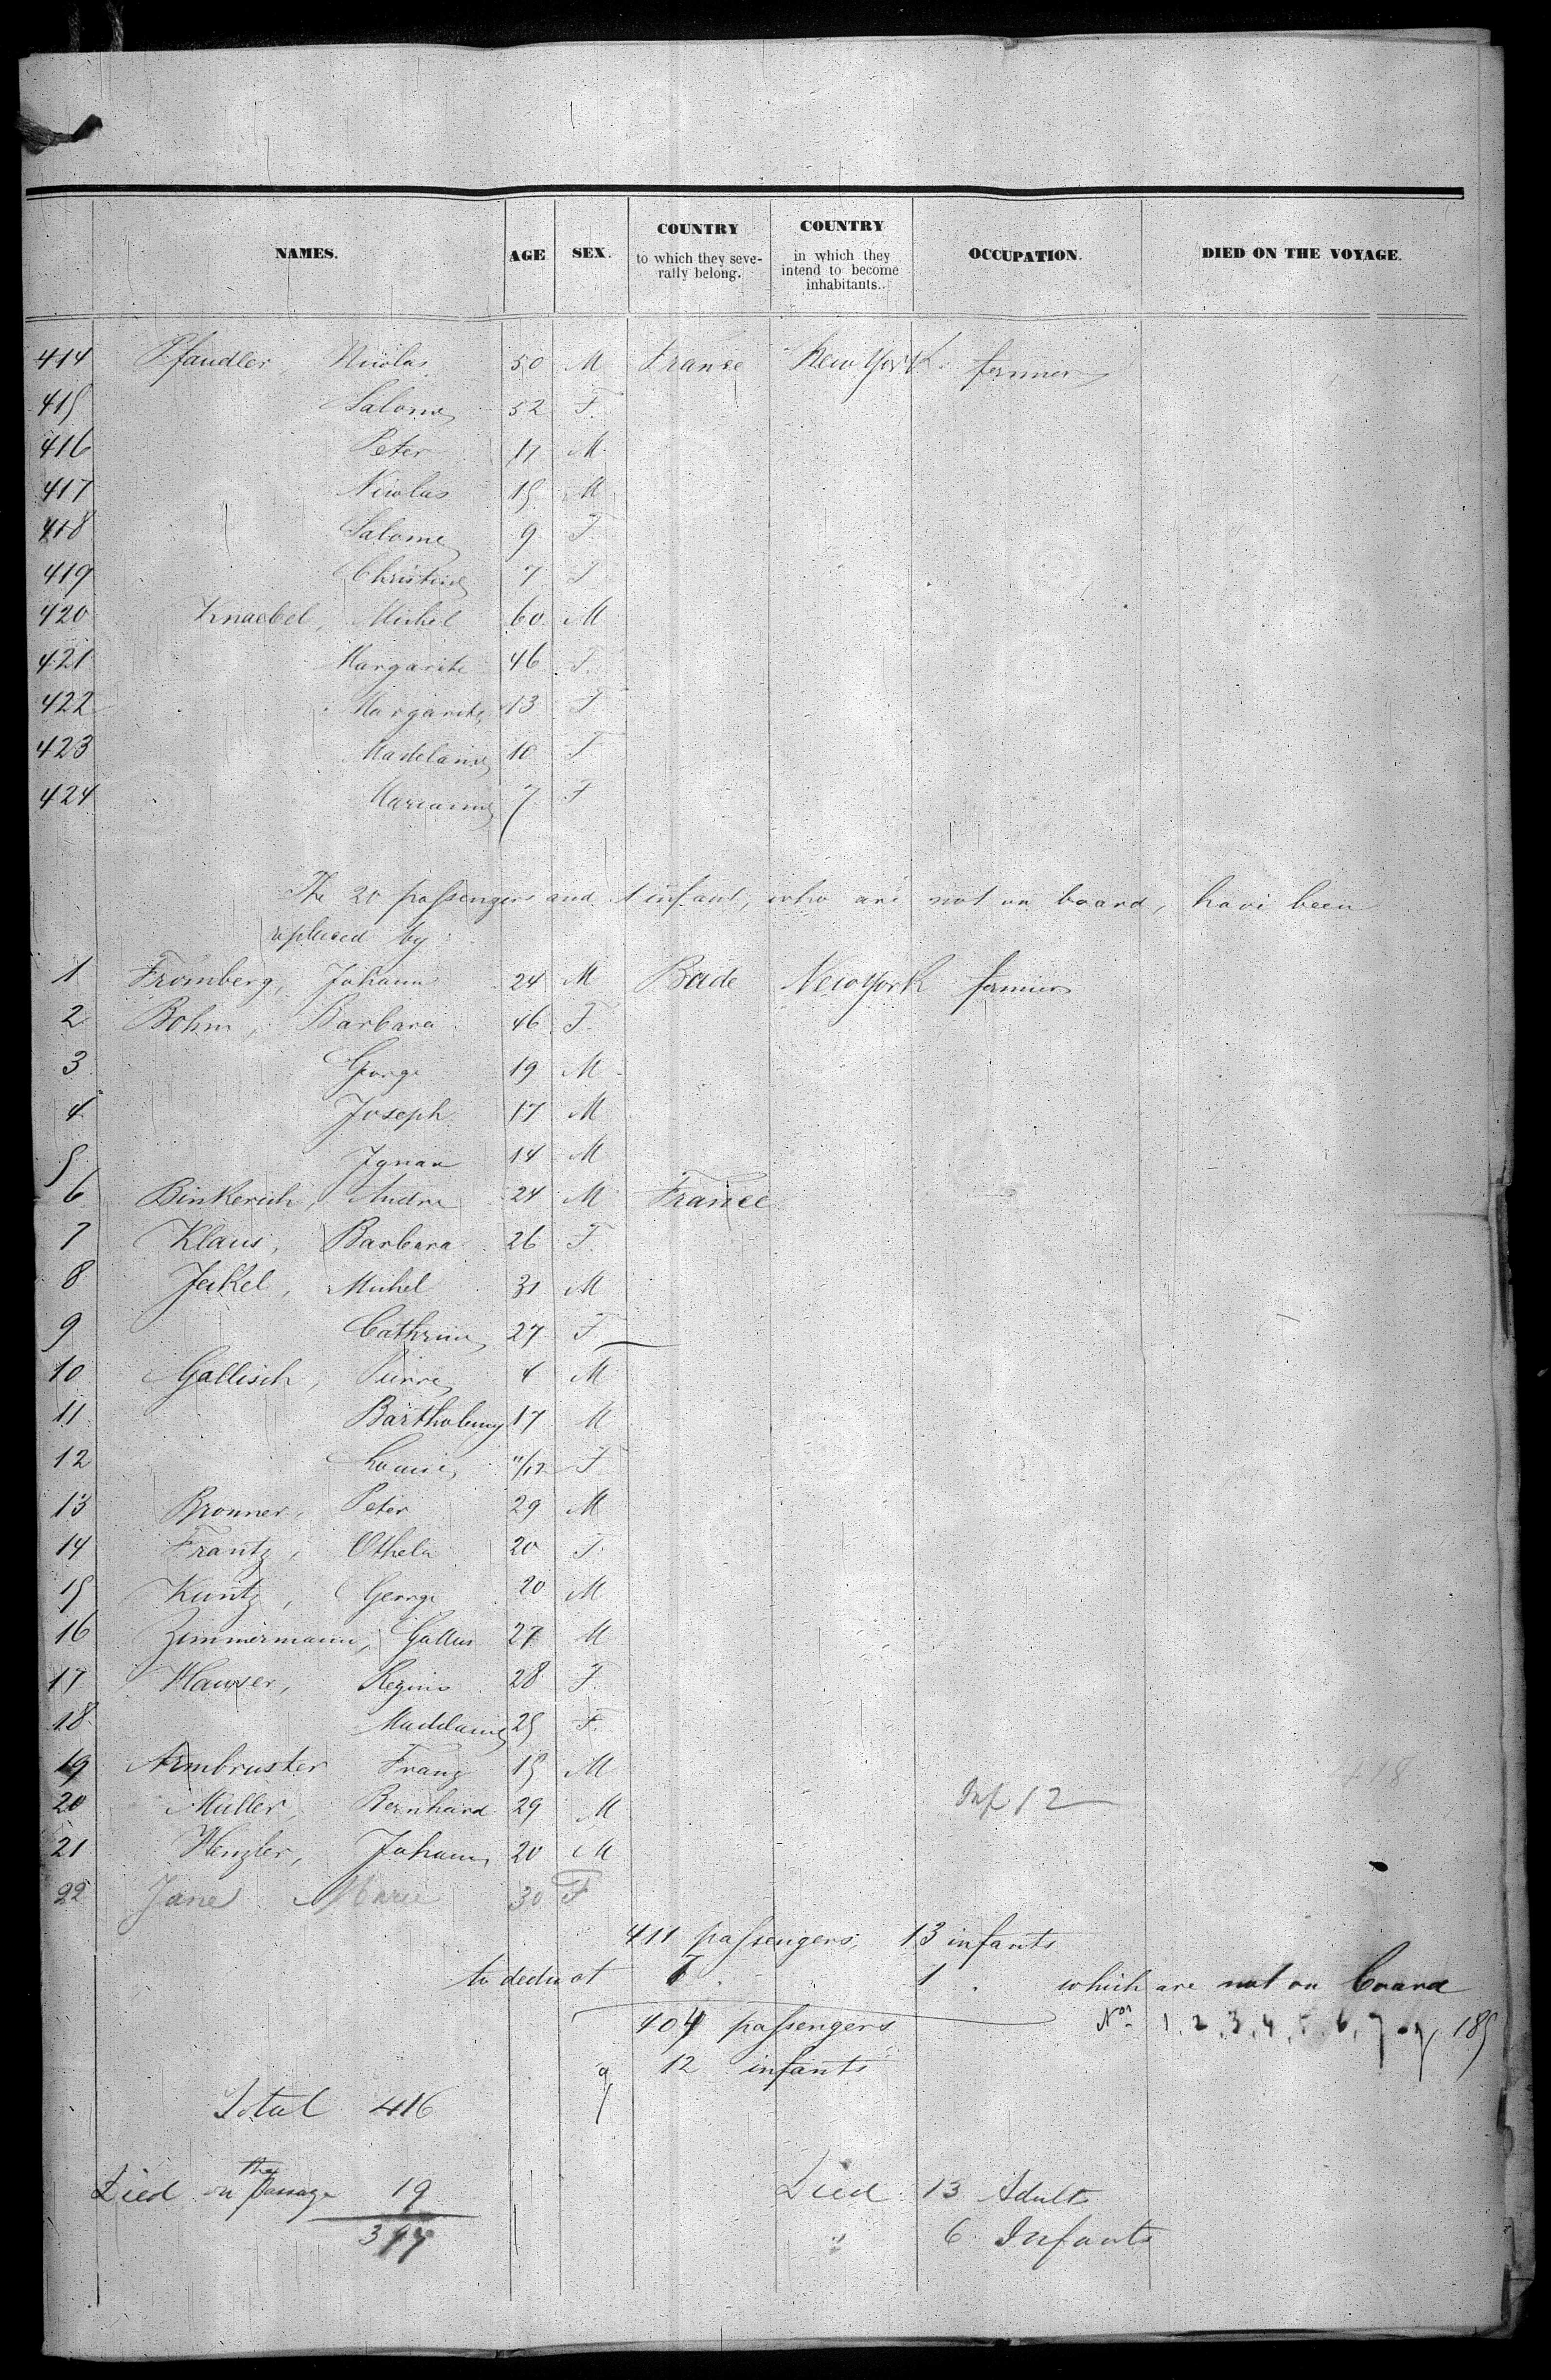 NAMES. AGE SEX. COUNTRY to which they severally belong. COUNTRY in which they intend to become inhabitants. OCCUPATION. DIED ON THE VOYAGE.
414 Pfaudler, Nicolas 50 M France New York farmer
415 Salome 52 F.
416 Peter 17 M
417 Nicolas 15 M
418 Salome 9 F
419 Christine 7 F
420 Knaebel, Michel 60 M
421 Margarite 46 F.
422 Margarite 13 F
423 Madelaine 10 F.
424 Marianne 7 F
The 20 passengers and 1 infant, who are not on board, have been
replaced by:
1 Fromberg, Johann 24 M Bade New York farmer
2 Bohm, Barbara 46 F.
3 George 19 M
4 Joseph 17 M
5 Ignace 14 M
6 Binkerich, Andre 24 M France
7 Klaus, Barbara 26 F.
8 Jeikel, Michel 31 M
9 Cathrine 27 F
10 Gallisch, Pierre 4 M
11 Bartholemy 17 M
12 Louise 11/12 F
13 Bronner, Peter 29 M
14 Frantz, 20 F
15 Kuntz, George 20 M
16 Zimmermann, Gallus 27 M
17 Hauser, Regine 28 F.
18 Madelaine 25 F.
19 Armbruster Franz 15 M
20 Muller, Bernhard 29 M Inf 12 418
21 Henzler, Johann 20 M
22 Jane Marie 30 F
411 passengers, 13 infants
to deduct 7 " 1 " which are not on board
404 passengers Nos 1. 2. 3. 4. 5. 6. 7. 185
12 infants
Total 416
Died on the Passage 19 Died 13 Adults
397 " 6 Infants